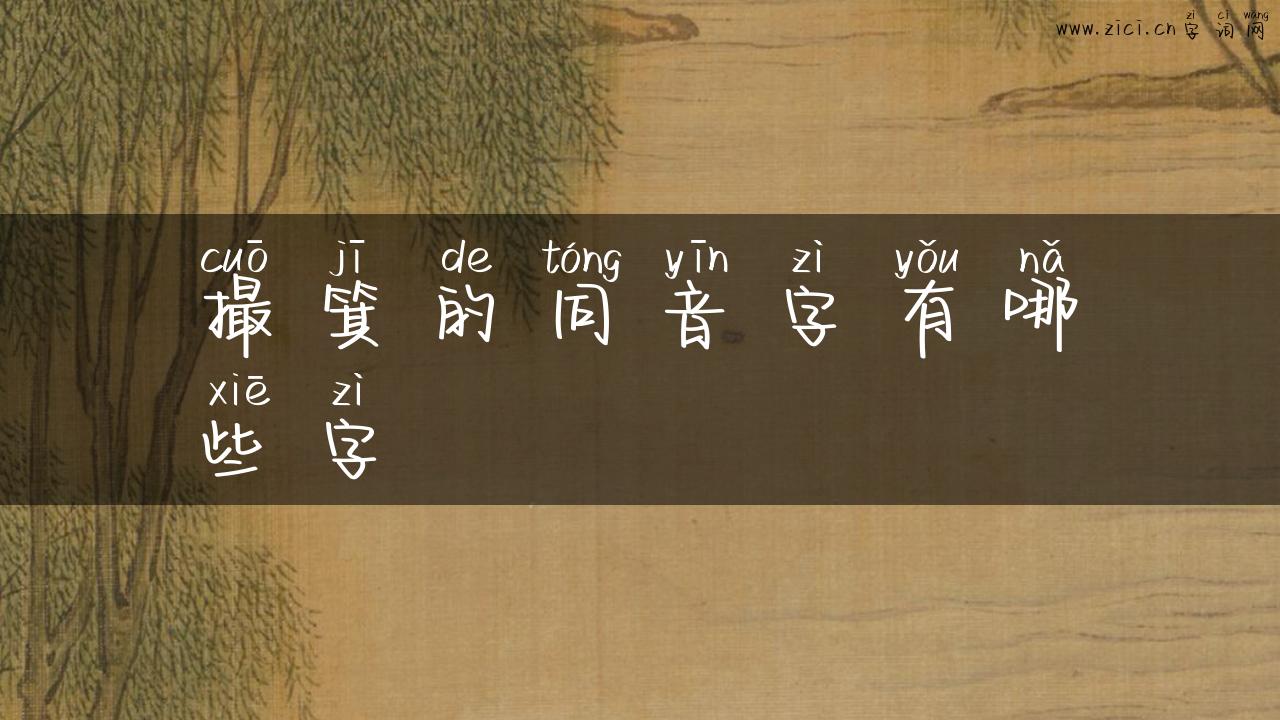 zì cí wǎng
www.zici.cn 字词网
cuō jī de tóng yīn zì yǒu nǎ
撮箕的同音字有哪
xiē zì
些字